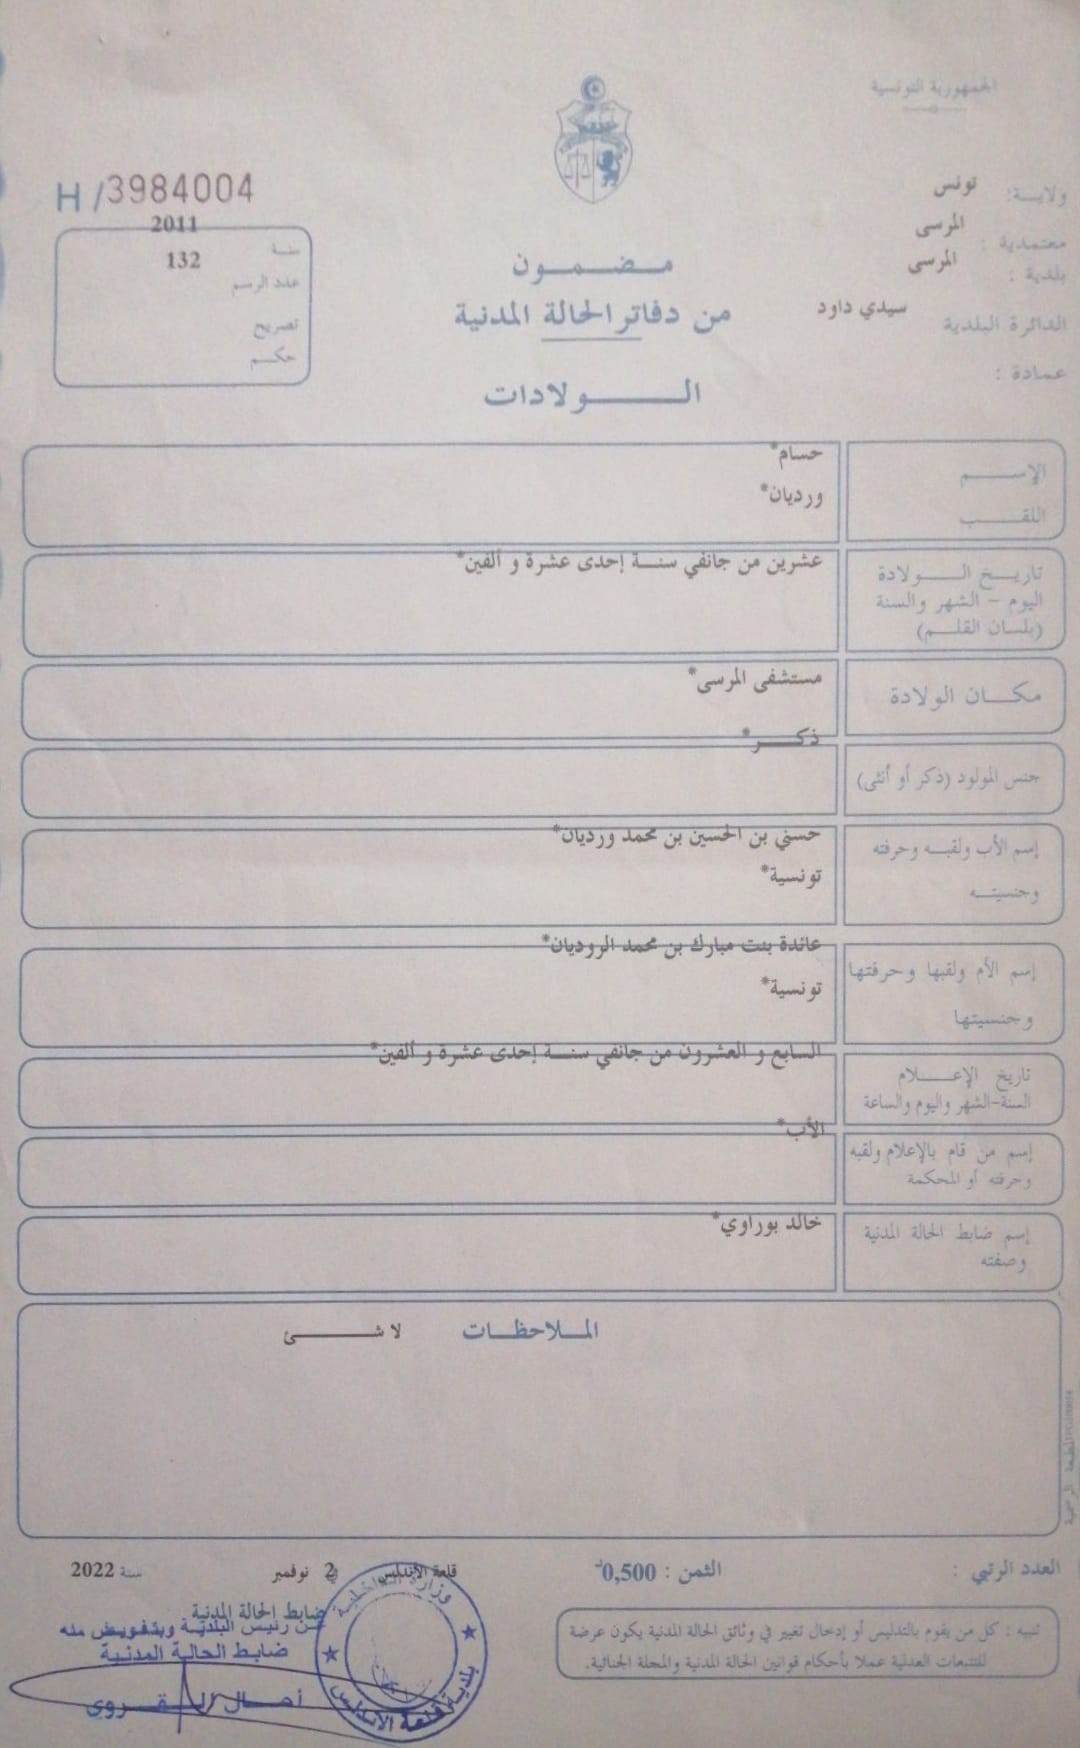 الجمهورية التونسية
H/3984004
ولايــة: تونس
معتمدية : المرسى
بلدية : المرسى
الدائرة البلدية سيدي داود
عمادة :
سنة 2011
عدد الرسم 132
تصريح
حكم
مضمون
من دفاتر الحالة المدنية
الولادات
الإسم حسام*
اللقب ورديان*
تاريخ الولادة عشرين من جانفي سنة إحدى عشرة و ألفين*
اليوم - الشهر والسنة
(بلسان القلم)
مكان الولادة مستشفى المرسى*
ذكر*
جنس المولود (ذكر أو أنثى)
إسم الأب ولقبه وحرفته حسني بن الحسين بن محمد ورديان*
وجنسيته تونسية*
إسم الأم ولقبها وحرفتها عائدة بنت مبارك بن محمد الروديان*
وجنسيتها تونسية*
السابع و العشرون من جانفي سنة إحدى عشرة و ألفين*
تاريخ الإعلام
السنة-الشهر واليوم والساعة
الأب*
إسم من قام بالإعلام ولقبه
وحرفته أو المحكمة
إسم ضابط الحالة المدنية خالد بوراوي*
وصفته
الملاحظات لا شئ
العدد الرتبي :
الثمن : 0,500د
قلعة الأندلس في 2 نوفمبر سنة 2022
ضابط الحالة المدنية
عن رئيس البلدية وبتفويض منه
ضابط الحالة المدنية
أمال القروي
وزارة الداخلية
بلدية قلعة الأندلس
تنبيه : كل من يقوم بالتدليس أو إدخال تغيير في وثائق الحالة المدنية يكون عرضة
للتتبعات العدلية عملا بأحكام قوانين الحالة المدنية والمجلة الجنائية.
المطبعة الرسمية